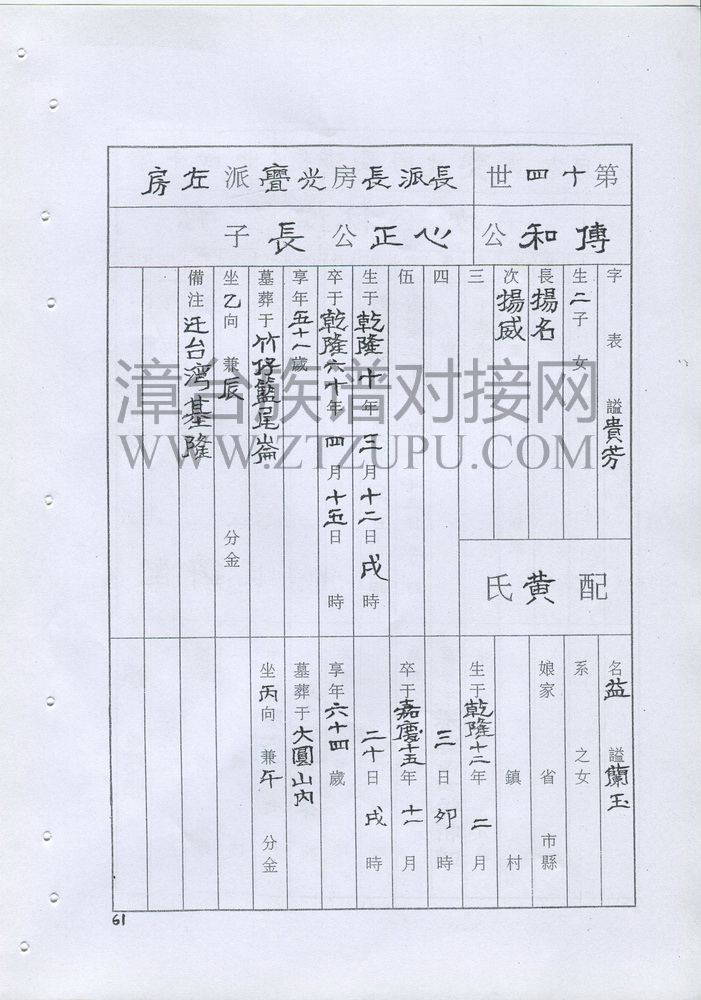 第十四世
長派長房光亹派左房
傳和公
心正公長子
字表 謚貴芳
生二子女
長揚名
次揚威
三
四
伍
生于乾隆十年三月十二日戌時
卒于乾隆六十年四月十五日 時
享年五十一歲
墓葬于竹仔籃尾崙
坐乙向兼辰 分金
備注迁台灣基隆
配黄氏
名益 謚蘭玉
系 之女
娘家 省 市縣
鎮 村
生于乾隆十二年二月
三日夘時
卒于嘉慶十五年十一月
二十日戌時
享年六十四歲
墓葬于大圓山内
坐丙向兼午分金
漳台族谱对接网
WWW.ZTZUPU.COM
61